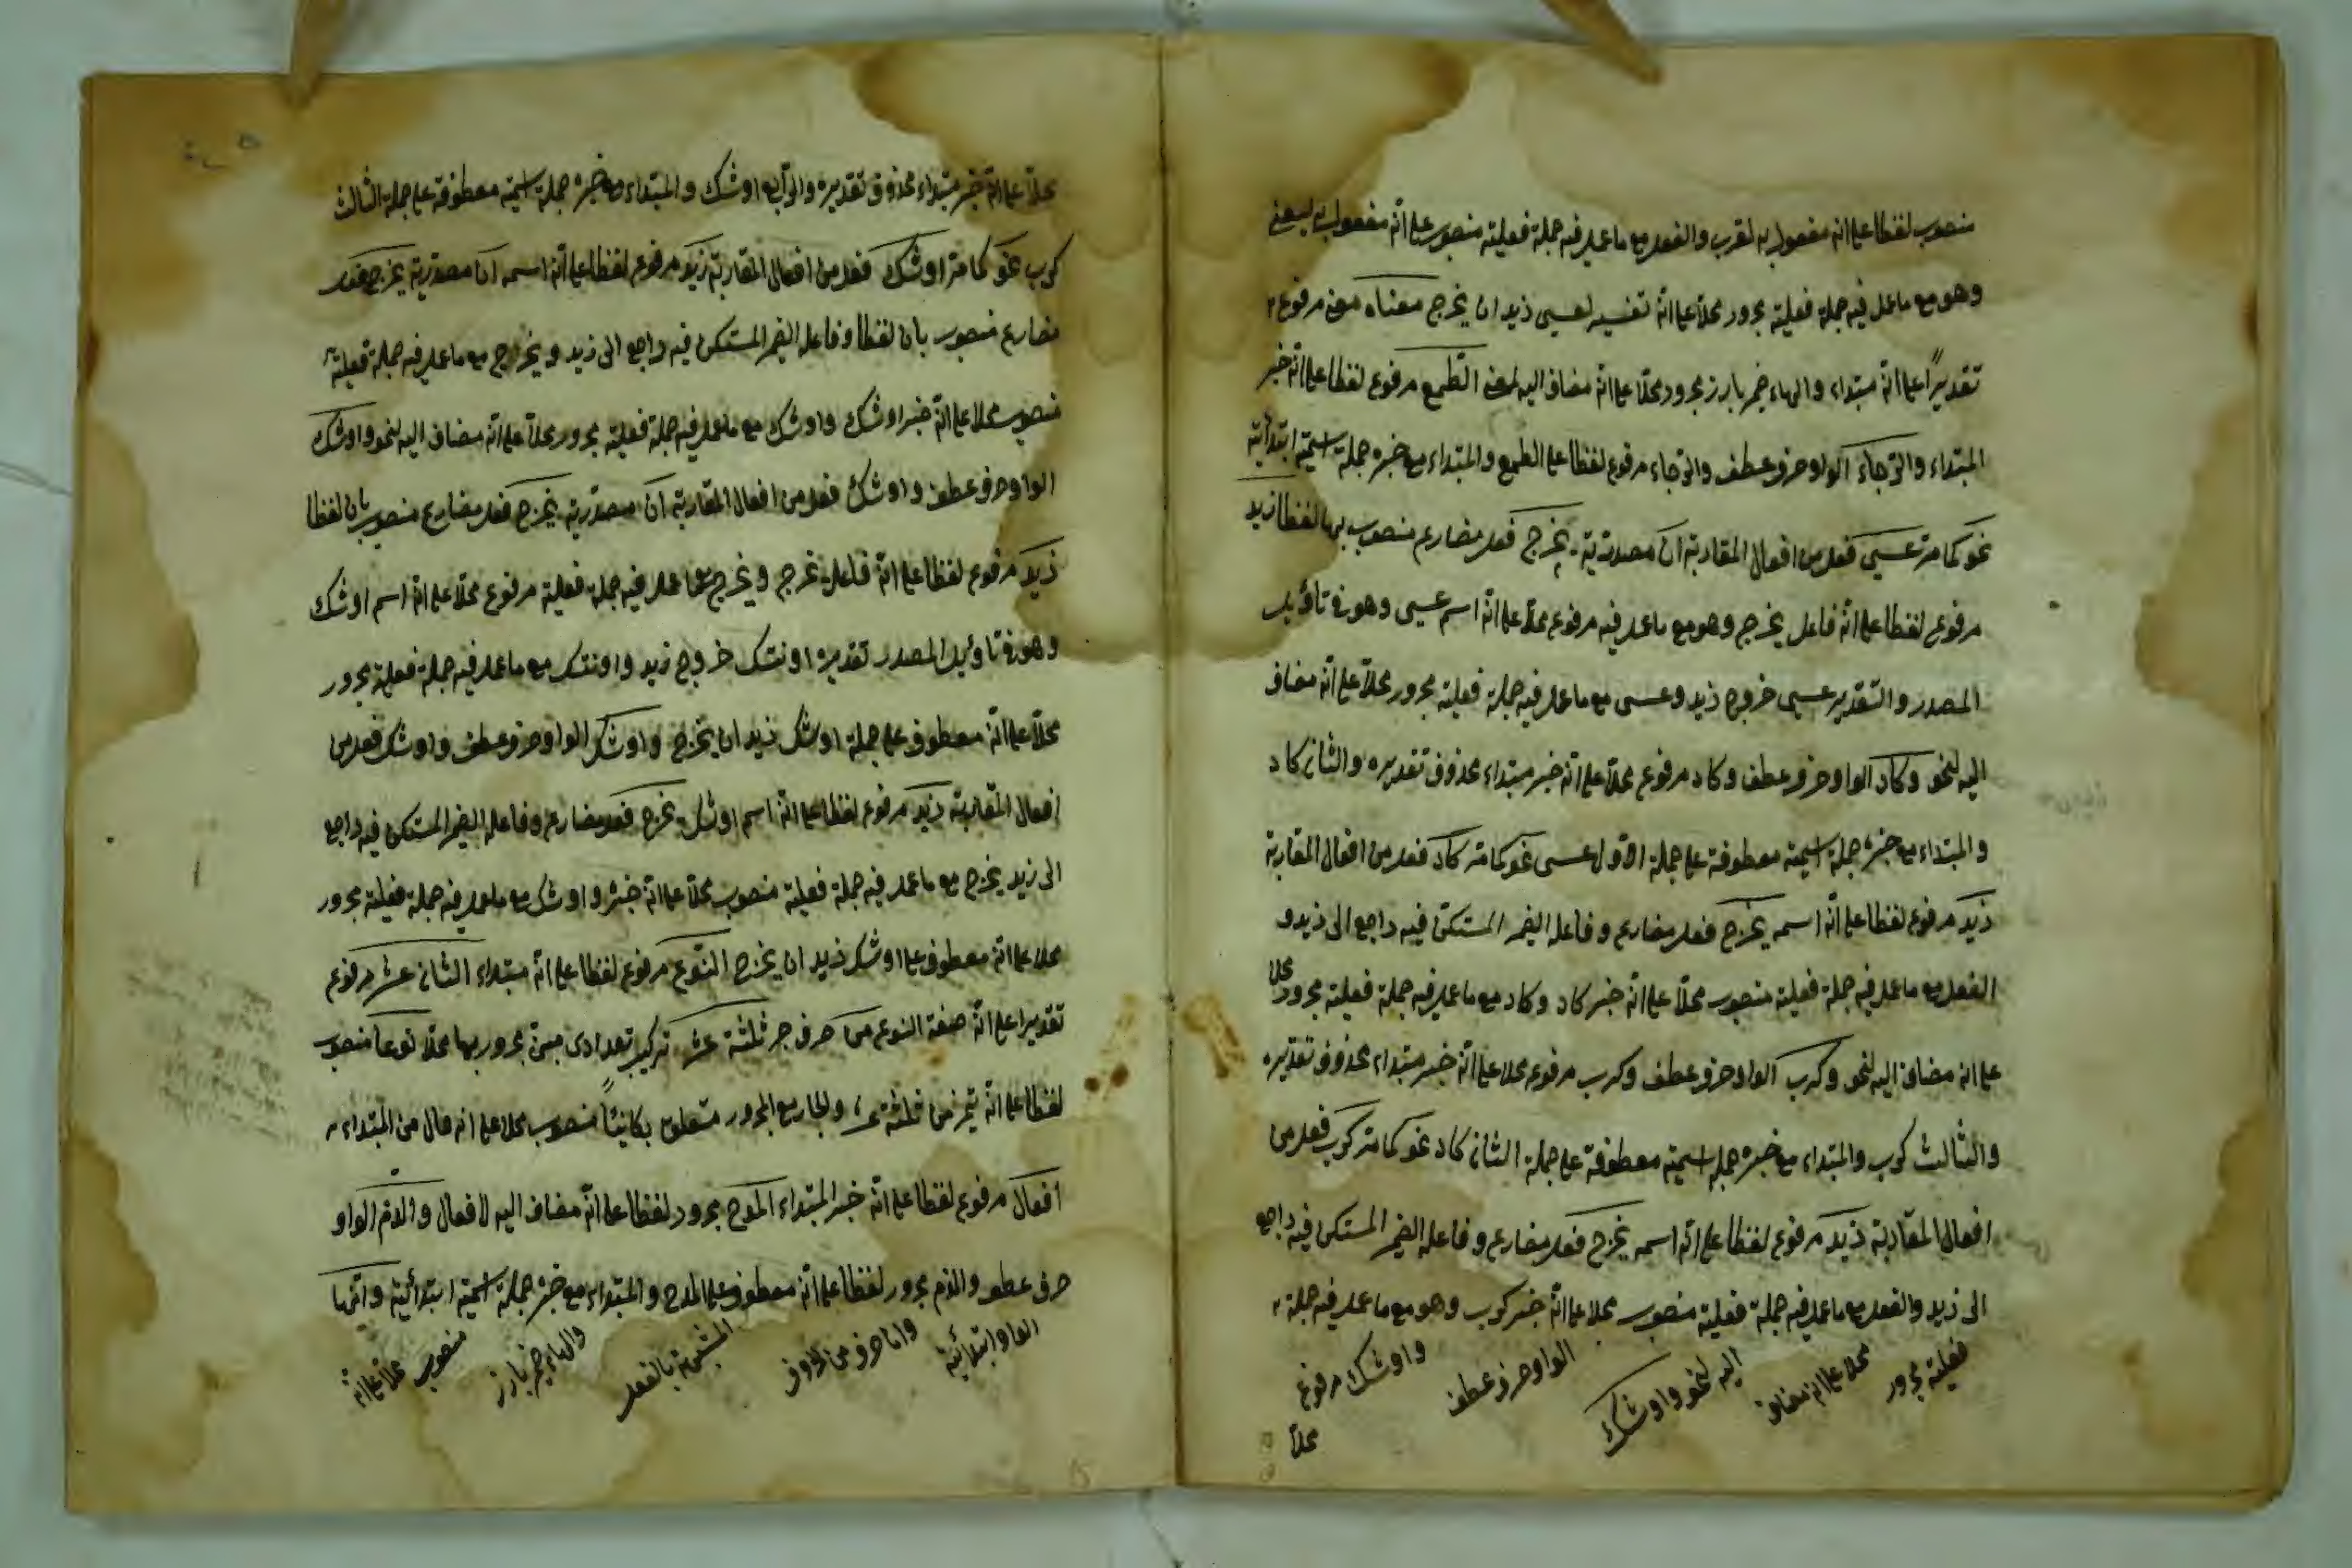 منصوب لفظا على انه مفعول به لقرب والفعل مع ما عمل فيه جملة فعلية منصوب على انّه مفعول به ليعنى
وهو مع ما عمل فيه جملة فعلية مجرور محلّا على انّه تفسير لعسى زيد ان يخرج معناه معنى مرفوع
تقديرًا على انّه مبتداء والهاء ضمير بارز مجرور محلّا على انّه مضاف اليه لمعنى الطّمع مرفوع لفظا على انّه خبر
المبتداء والرّجاء الواو حرف عطف والرّجاء مرفوع لفظا على الطمع والمبتداء مع خبره جملة اسميّة ابتدائية
نحو كما مرّ عسى فعل من افعال المقاربة ان مصدرّية يخرج فعل مضارع منصوب بها لفظا زيد
مرفوع لفظا على انّه فاعل يخرج وهو مع ما عمل فيه مرفوع محلّا على انّه اسم عسى وهو فى تاؤيل
المصدر والتّقدير عسى خروج زيد وعسى مع ما عمل فيه جملة فعلية مجرور محلّا على انّه مضاف
اليه لنحو وكاد الواو حرف عطف وكاد مرفوع محلّا على انّه خبر مبتداء محذوف تقديره والثانى كاد
والمبتداء مع خبره جملة اسميّة معطوفة على جملة الاوّل عسى نحو كما مرّ كاد فعل من افعال المقاربة
زيد مرفوع لفظا على انّه اسمه يخرج فعل مضارع وفاعله الضمير المستكنّ فيه راجع الى زيد و
الفعل مع ما عمل فيه جملة فعلية منصوب محلّا على انّه خبر كاد وكاد مع ما عمل فيه جملة فعلية مجرور محلا
على انه مضاف اليه لنحو وكرب الواو حرف عطف وكرب مرفوع محلا على انّه خبر مبتداء محذوف تقديره
والثالث كرب والمبتداء مع خبره جملة اسميّة معطوفة على جملة الثانى كاد نحو كما مرّ كرب فعل من
افعال المقاربة زيد مرفوع لفظا على انّه اسمه يخرج فعل مضارع وفاعله الضمير المستكن فيه راجع
الى زيد والفعل مع ما عمل فيه جملة فعلية منصوب محلا على انّه خبر كرب وهو مع ما عمل فيه جملة
فعليّة مجرور محلا على انه مضاف اليه لنحو واوشك الواو حرف عطف واوشك مرفوع
محلّا
محلّا على انّه خبر مبتداء محذوف تقديره والرّابع اوشك والمبتداء مع خبره جملة اسميّة معطوفة على جملة الثالث
كرب نحو كما مرّ اوشك فعل من افعال المقاربة زيد مرفوع لفظا على انّه اسمه ان مصدريّة يخرج فعل
مضارع منصوب بان لفظا وفاعله الضمير المستكن فيه راجع الى زيد ويخرج مع ما عمل فيه جملة فعلية
منصوب محلا على انّه خبر اوشك واوشك مع ما عمل فيه جملة فعلية مجرور محلّا على انّه مضاف اليه لنحو واوشك
الواو حرف عطف واوشك فعل من افعال المقاربة ان مصدّرية يخرج فعل مضارع منصوب بان لفظا
زيد مرفوع لفظا على انّه فاعل يخرج ويخرج مع ما عمل فيه جملة فعلية مرفوع محلّا على انّه اسم اوشك
وهو فى تاوئيل المصدر تقديره اوشك خروج زيد واوشك مع ما عمل فيه جملة فعلية مجرور
محلّا على انّه معطوف على جملة اوشك زيد ان يخرج واوشك الواو حرف عطف واوشك فعل من
افعال المقاربة زيد مرفوع لفظا على انّه اسم اوشك يخرج فعل مضارع وفاعله الضمير المستكن فيه راجع
الى زيد يخرج مع ما عمل فيه جملة فعلية منصوب محلّا على انّه خبره واوشك مع ما عمل فيه جملة فعلية مجرور
محلا على انّه معطوف على اوشك زيد ان يخرج النوع مرفوع لفظا على انّه مبتداء الثانى عشر مرفوع
تقديرا على انّه صفة النوع من حرف جر ثلثة عشر تركيب تعدادى مبنىّ مجرور بها محلّا نوعا منصوب
لفظا على انّه تميز من ثلثة عشر والجار مع المجرور متعلق بكائنًا منصوب محلا على انه حال من المبتداء
افعال مرفوع لفظا على انّه خبر المبتداء المدح مجرور لفظا على انّه مضاف اليه لافعال والذّم الواو
حرف عطف والذم مجرور لفظا على انّه معطوف على المدح والمبتداء مع خبره جملة اسميّة ابتدائية وانّها
الواو ابتدائيّة وانّ حرف من الحروف المشبهة بالفعل والهاء ضمير بارز منصوب محلّا على انّه